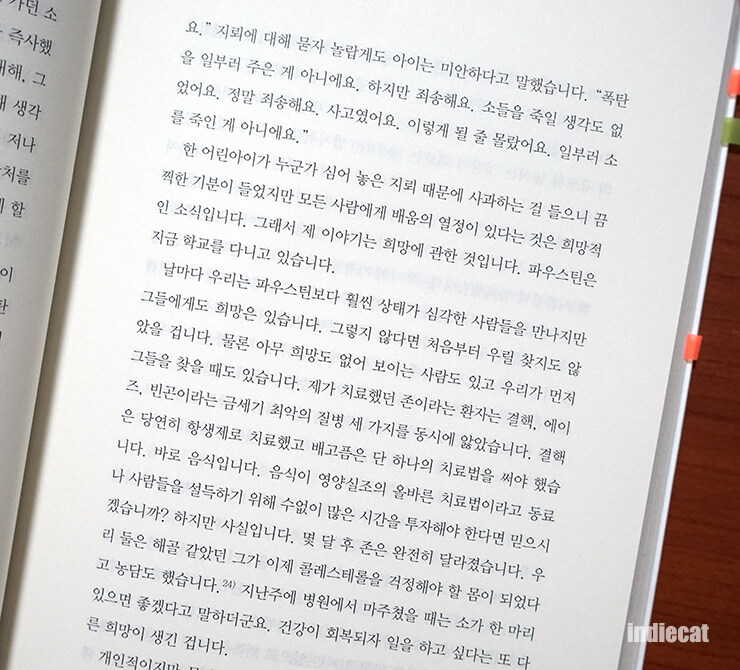 가던 소
즉사했
대해, 그
내 생각
저나
상처를
게 할
이
탄
요.” 지뢰에 대해 묻자 놀랍게도 아이는 미안하다고 말했습니다. “폭탄
을 일부러 주은 게 아니에요. 하지만 죄송해요. 소들을 죽일 생각도 없
었어요. 정말 죄송해요. 사고였어요. 이렇게 될 줄 몰랐어요. 일부러 소
를 죽인 게 아니에요.”
한 어린아이가 누군가 심어 놓은 지뢰 때문에 사과하는 걸 들으니 끔
찍한 기분이 들었지만 모든 사람에게 배움의 열정이 있다는 것은 희망적
인 소식입니다. 그래서 제 이야기는 희망에 관한 것입니다. 파우스틴은
지금 학교를 다니고 있습니다.
날마다 우리는 파우스틴보다 훨씬 상태가 심각한 사람들을 만나지만
그들에게도 희망은 있습니다. 그렇지 않다면 처음부터 우릴 찾지도 않
았을 겁니다. 물론 아무 희망도 없어 보이는 사람도 있고 우리가 먼저
그들을 찾을 때도 있습니다. 제가 치료했던 존이라는 환자는 결핵, 에이
즈, 빈곤이라는 금세기 최악의 질병 세 가지를 동시에 앓았습니다. 결핵
은 당연히 항생제로 치료했고 배고픔은 단 하나의 치료법을 써야 했습
니다. 바로 음식입니다. 음식이 영양실조의 올바른 치료법이라고 동료
나 사람들을 설득하기 위해 수없이 많은 시간을 투자해야 한다면 믿으시
겠습니까? 하지만 사실입니다. 몇 달 후 존은 완전히 달라졌습니다. 우
리 둘은 해골 같았던 그가 이제 콜레스테롤을 걱정해야 할 몸이 되었다
고 농담도 했습니다.24) 지난주에 병원에서 마주쳤을 때는 소가 한 마리
있으면 좋겠다고 말하더군요. 건강이 회복되자 일을 하고 싶다는 또 다
른 희망이 생긴 겁니다.
개인적이지만
indiecat